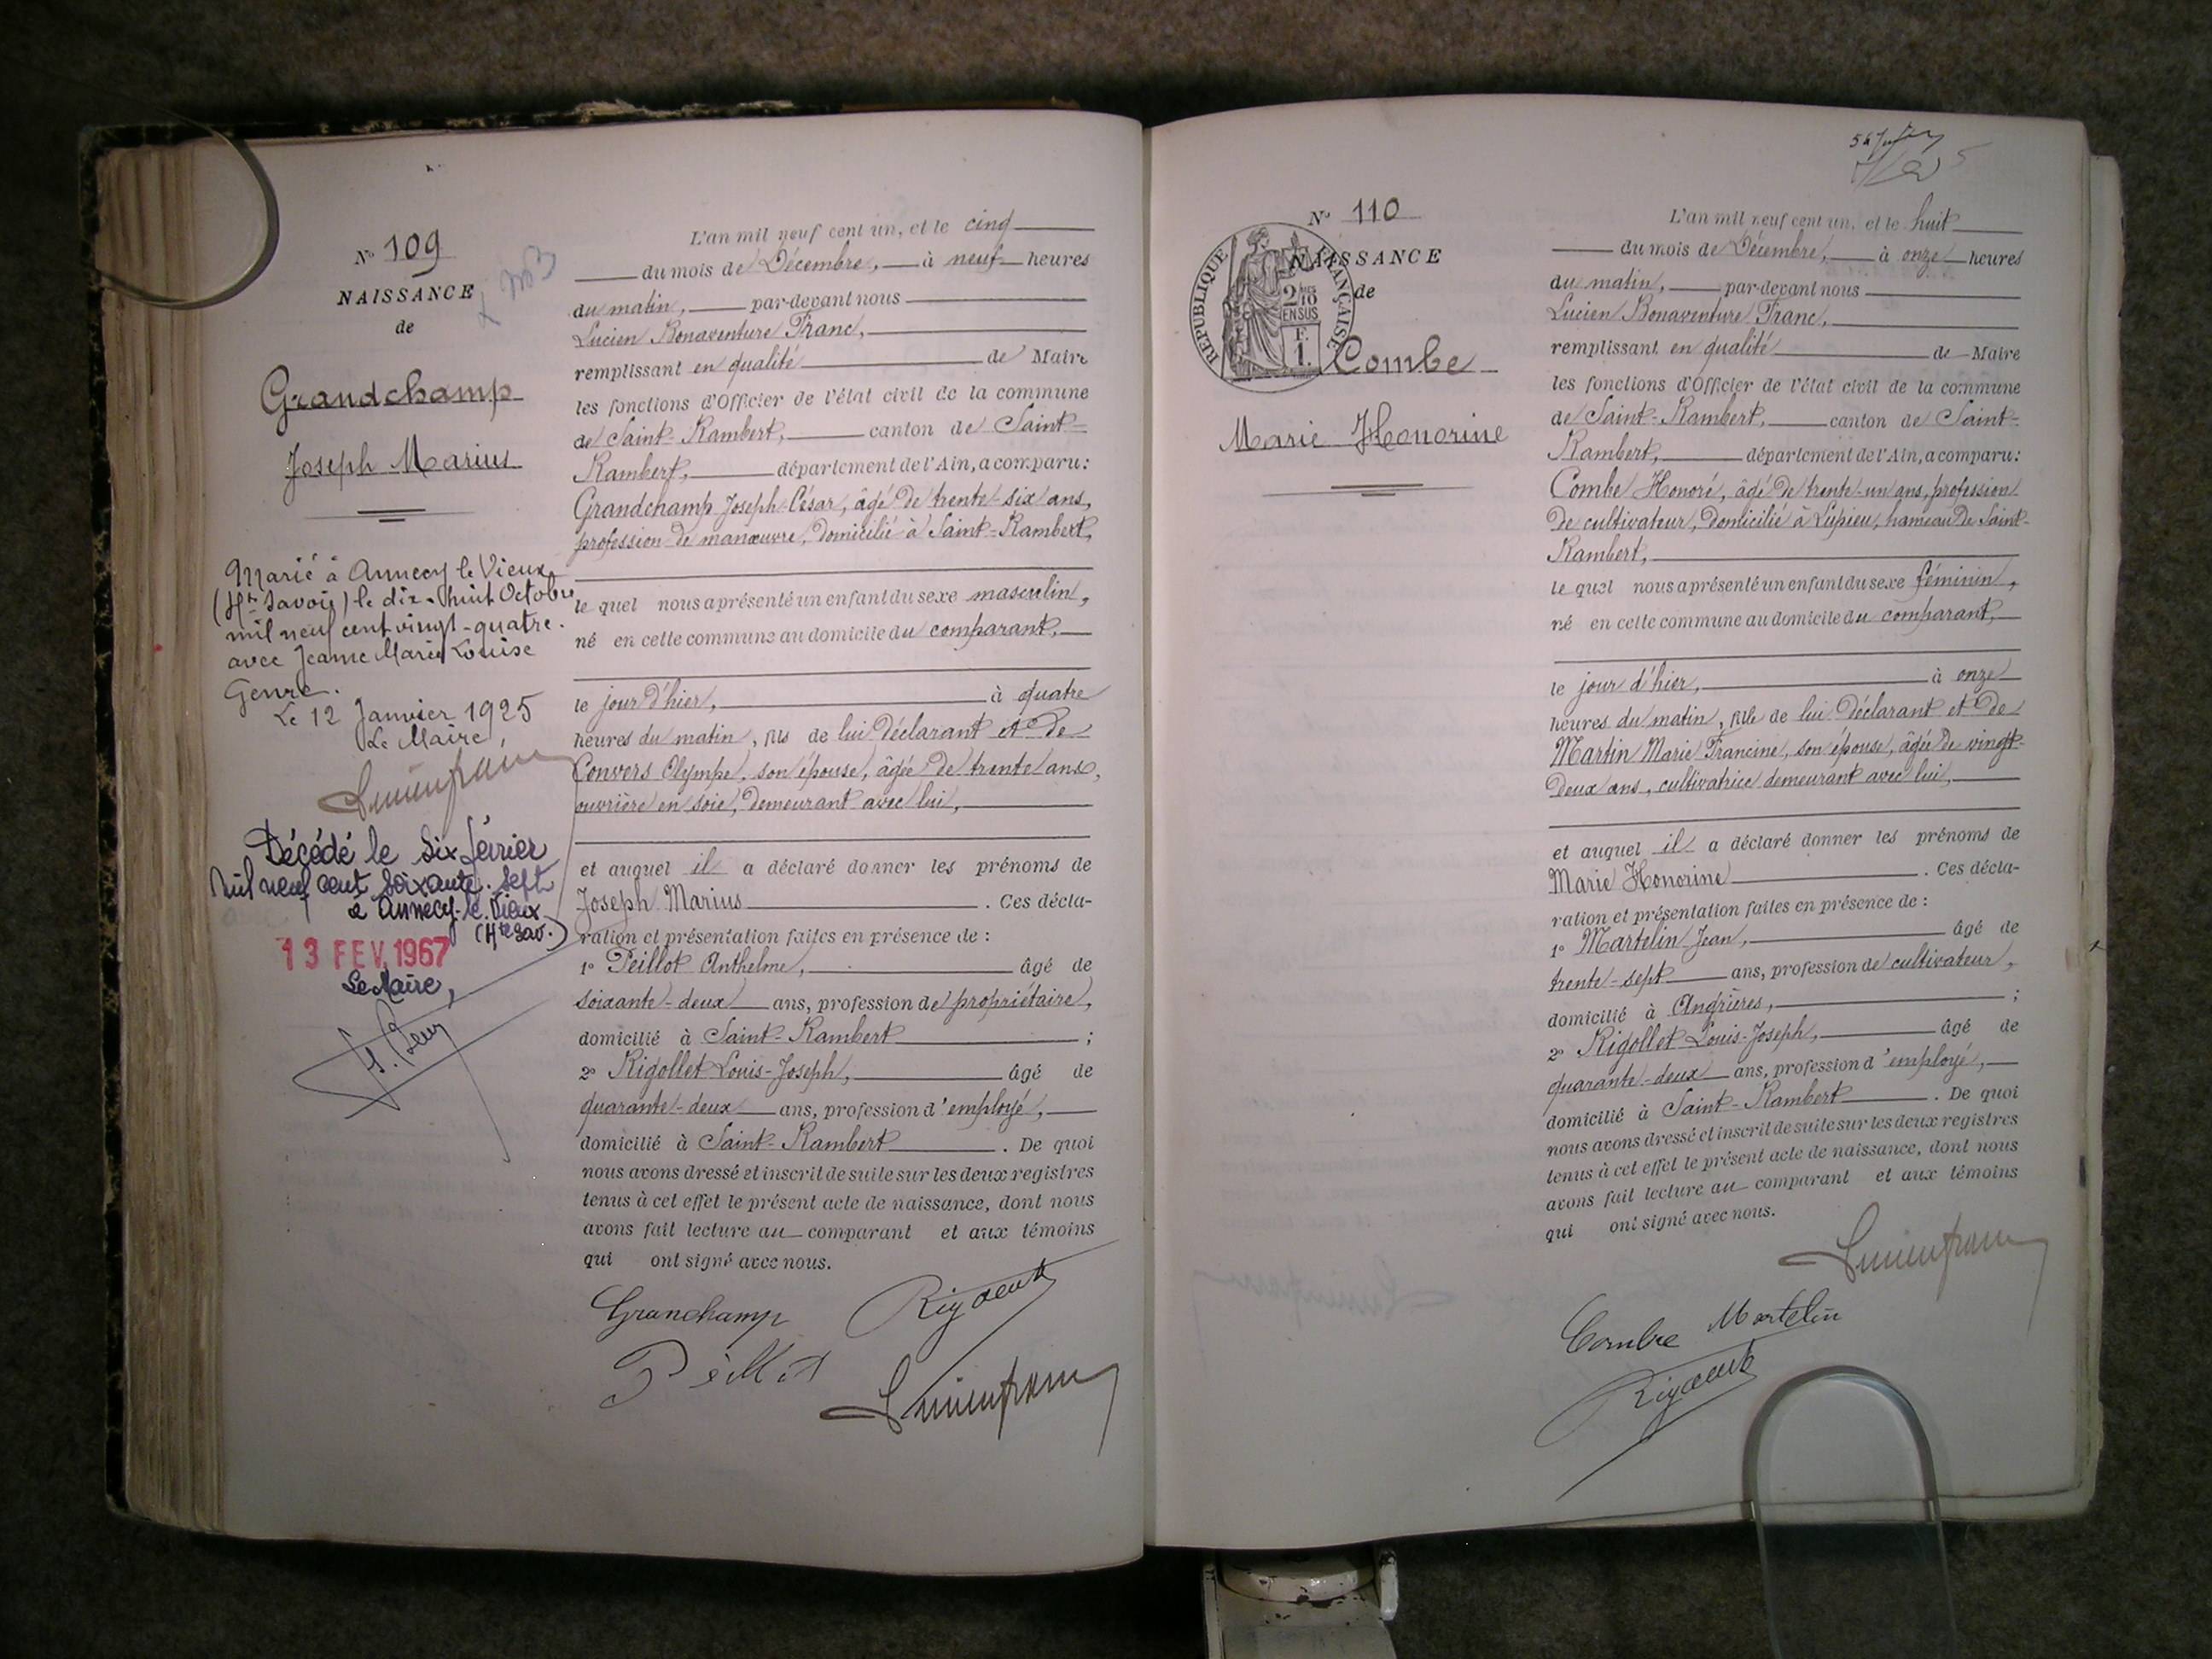 Nº 109
NAISSANCE
de
Grandchamp
Joseph Marius
Marié à Annecy le Vieux
(Hte Savoie) le dix-huit Octobre
mil neuf cent vingt-quatre.
avec Jeanne Marie Louise
Genre.
Le 12 Janvier 1925
Le Maire,
Décédé le six février
mil neuf cent soixante-sept
à Annecy-le-Vieux
(Hte Sav.)
13 FEV. 1967
Le Maire,
L'an mil neuf cent un, et le cinq
du mois de Décembre, à neuf heures
du matin, par-devant nous
Lucien Bonaventure Franc,
remplissant en qualité de Maire
les fonctions d'Officier de l'état civil de la commune
de Saint-Rambert, canton de Saint-
Rambert, département de l'Ain, a comparu:
Grandchamp Joseph-César, âgé de trente-six ans,
profession de manœuvre, domicilié à Saint-Rambert,
le quel nous a présenté un enfant du sexe masculin,
né en cette commune au domicile du comparant,
le jour d'hier, à quatre
heures du matin, fils de lui déclarant et de
Convers Olympe, son épouse, âgée de trente ans,
ouvrière en soie, demeurant avec lui,
et auquel il a déclaré donner les prénoms de
Joseph Marius. Ces décla-
ration et présentation faites en présence de :
1º Peillot Anthelme, âgé de
soixante-deux ans, profession de propriétaire,
domicilié à Saint-Rambert ;
2º Rigollet Louis-Joseph, âgé de
quarante-deux ans, profession d'employé,
domicilié à Saint-Rambert. De quoi
nous avons dressé et inscrit de suite sur les deux registres
tenus à cet effet le présent acte de naissance, dont nous
avons fait lecture au comparant et aux témoins
qui ont signé avec nous.
Granchamp
Peillot
Nº 110
NAISSANCE
de
REPUBLIQUE FRANÇAISE
2/10
EN SUS
F.
1.
Combe
Marie Honorine
L'an mil neuf cent un, et le huit
du mois de Décembre, à onze heures
du matin, par-devant nous
Lucien Bonaventure Franc,
remplissant en qualité de Maire
les fonctions d'Officier de l'état civil de la commune
de Saint-Rambert, canton de Saint-
Rambert, département de l'Ain, a comparu:
Combe Honoré, âgé de trente-un ans, profession
de cultivateur, domicilié à Lupieu, hameau de Saint-
Rambert,
le quel nous a présenté un enfant du sexe féminin,
né en cette commune au domicile du comparant,
le jour d'hier, à onze
heures du matin, fille de lui déclarant et de
Martin Marie Francine, son épouse, âgée de vingt-
deux ans, cultivatrice demeurant avec lui,
et auquel il a déclaré donner les prénoms de
Marie Honorine. Ces décla-
ration et présentation faites en présence de :
1º Martelin Jean, âgé de
trente-sept ans, profession de cultivateur,
domicilié à Angrières, ;
2º Rigollet Louis-Joseph, âgé de
quarante-deux ans, profession d'employé,
domicilié à Saint-Rambert. De quoi
nous avons dressé et inscrit de suite sur les deux registres
tenus à cet effet le présent acte de naissance, dont nous
avons fait lecture au comparant et aux témoins
qui ont signé avec nous.
Combe Martelin